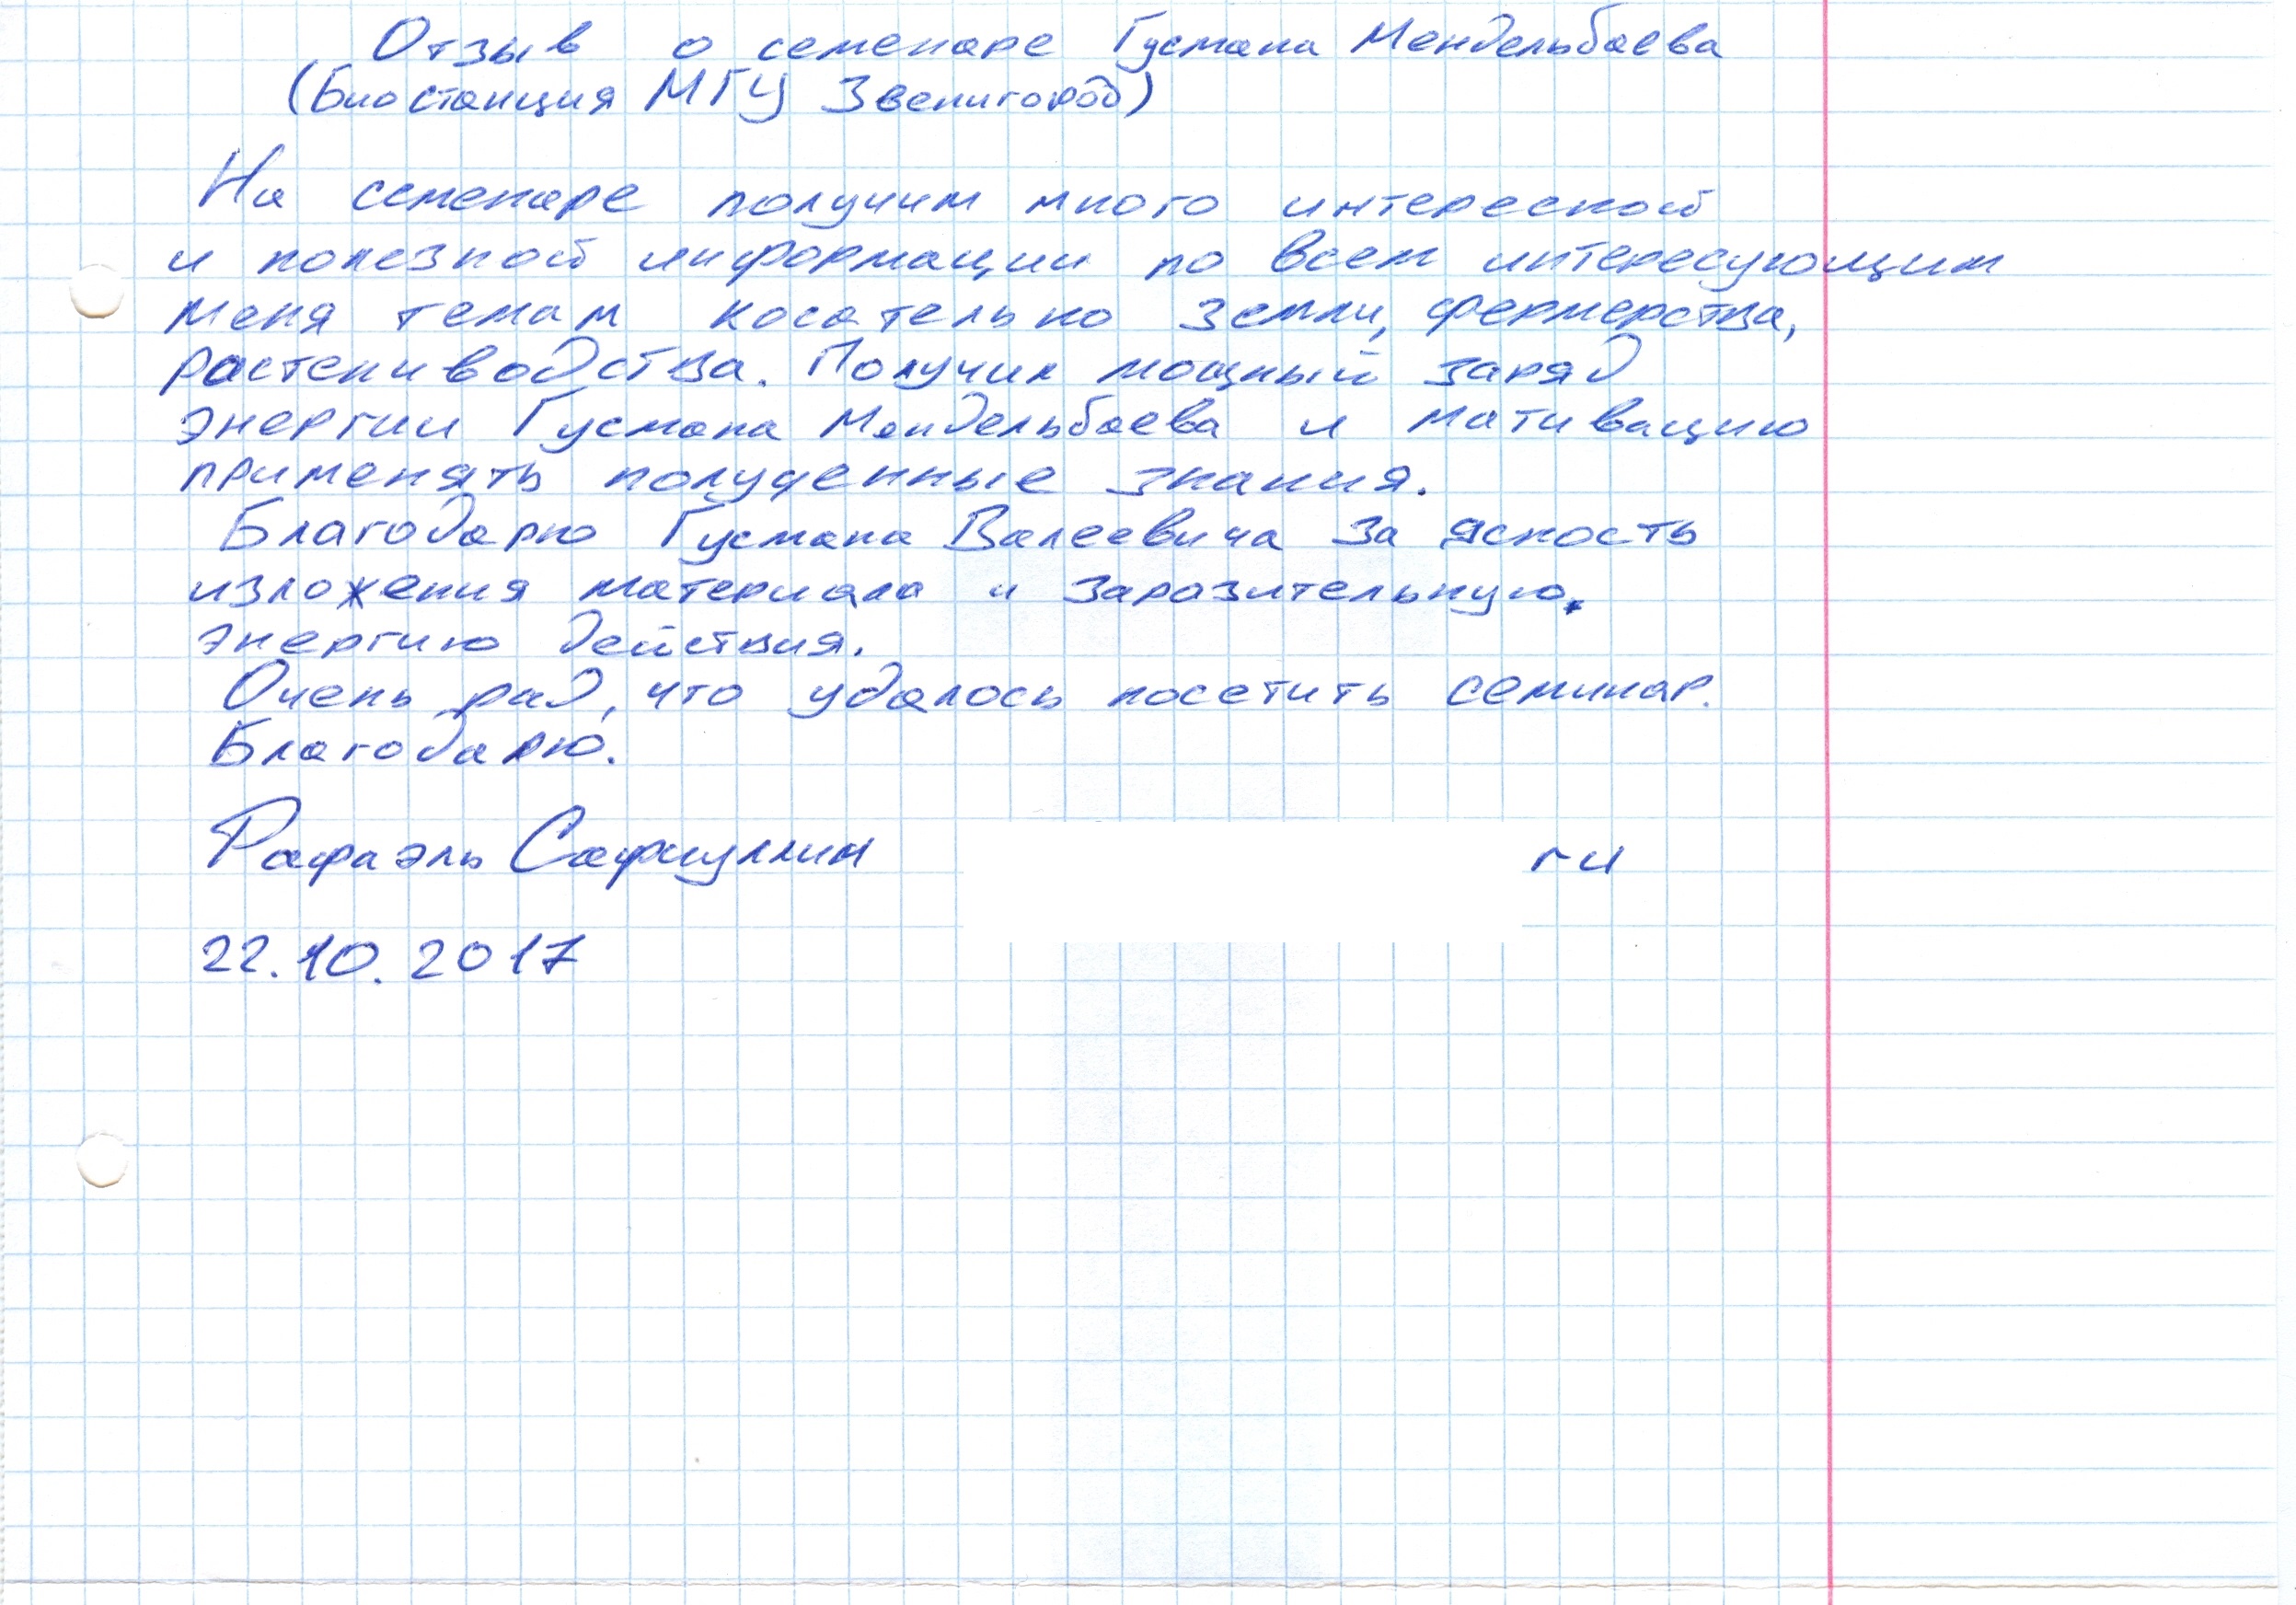 Отзыв о семенаре Гусмана Мендельбаева
(Биостанция МГУ Звенигород)
На семенаре получил много интересной
и полезной информации по всем интересующим
меня темам косательно земли, фермерства,
растениводства. Получил мощный заряд
энергии Гусмана Мендельбаева и мативацию
применять полученные знания.
Благодарю Гусмана Валеевича за ясность
изложения материала и заразительную
энергию действия.
Очень рад, что удалось посетить семинар.
Благодарю.
Рафаэль Сафиуллин ru
22.10.2017